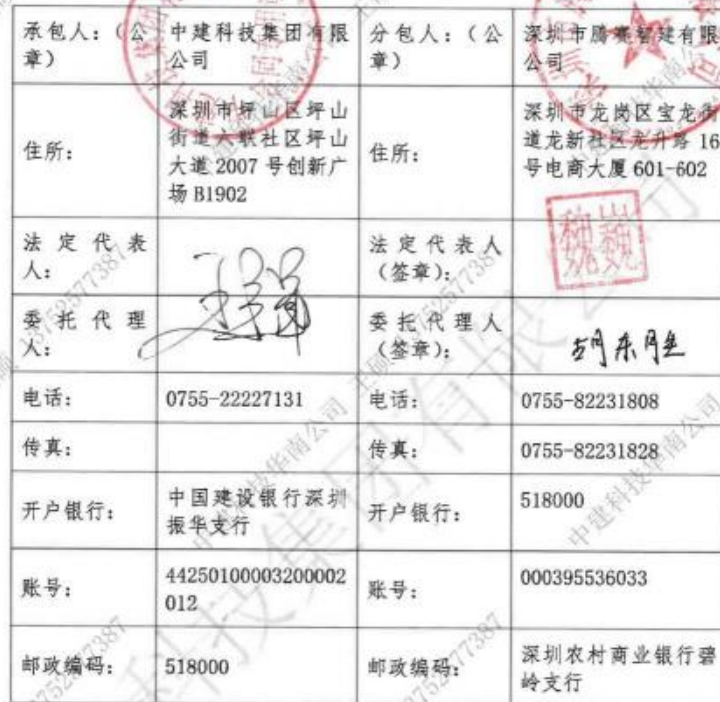 承包人：（公章） 中建科技集团有限公司 分包人：（公章） 深圳市腾赛智建有限公司
住所： 深圳市坪山区坪山街道六联社区坪山大道 2007 号创新广场 B1902 住所： 深圳市龙岗区宝龙街道龙新社区龙升路 16 号电商大厦 601-602
法定代表人： 法定代表人（签章）： 魏巍
委托代理人： 委托代理人（签章）： 胡东胜
电话： 0755-22227131 电话： 0755-82231808
传真： 传真： 0755-82231828
开户银行： 中国建设银行深圳振华支行 开户银行： 518000
账号： 44250100003200002012 账号： 000395536033
邮政编码： 518000 邮政编码： 深圳农村商业银行碧岭支行
中建科技华南公司 王硕 13752577387